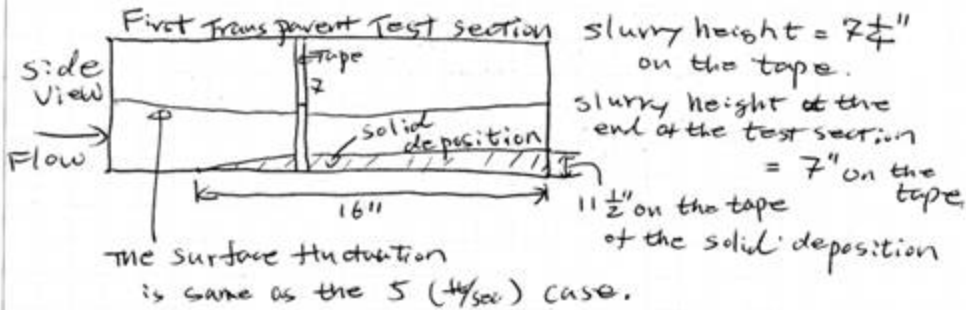 First Transparent Test section
slurry height = 7 1/4"
on the tape.
side
view
Tape
7
slurry height at the
end of the test section
= 7" on the
tape
solid
deposition
Flow
16"
11 1/2" on the tape
of the solid deposition
The surface fluctuation
is same as the 5 (ft/sec) case.